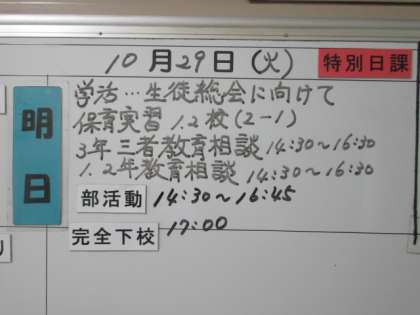 10月29日(火) 特別日課
明日
学活…生徒総会に向けて
保育実習 1.2校(2-1)
3年三者教育相談 14:30~16:30
1.2年教育相談 14:30~16:30
部活動 14:30~16:45
完全下校 17:00